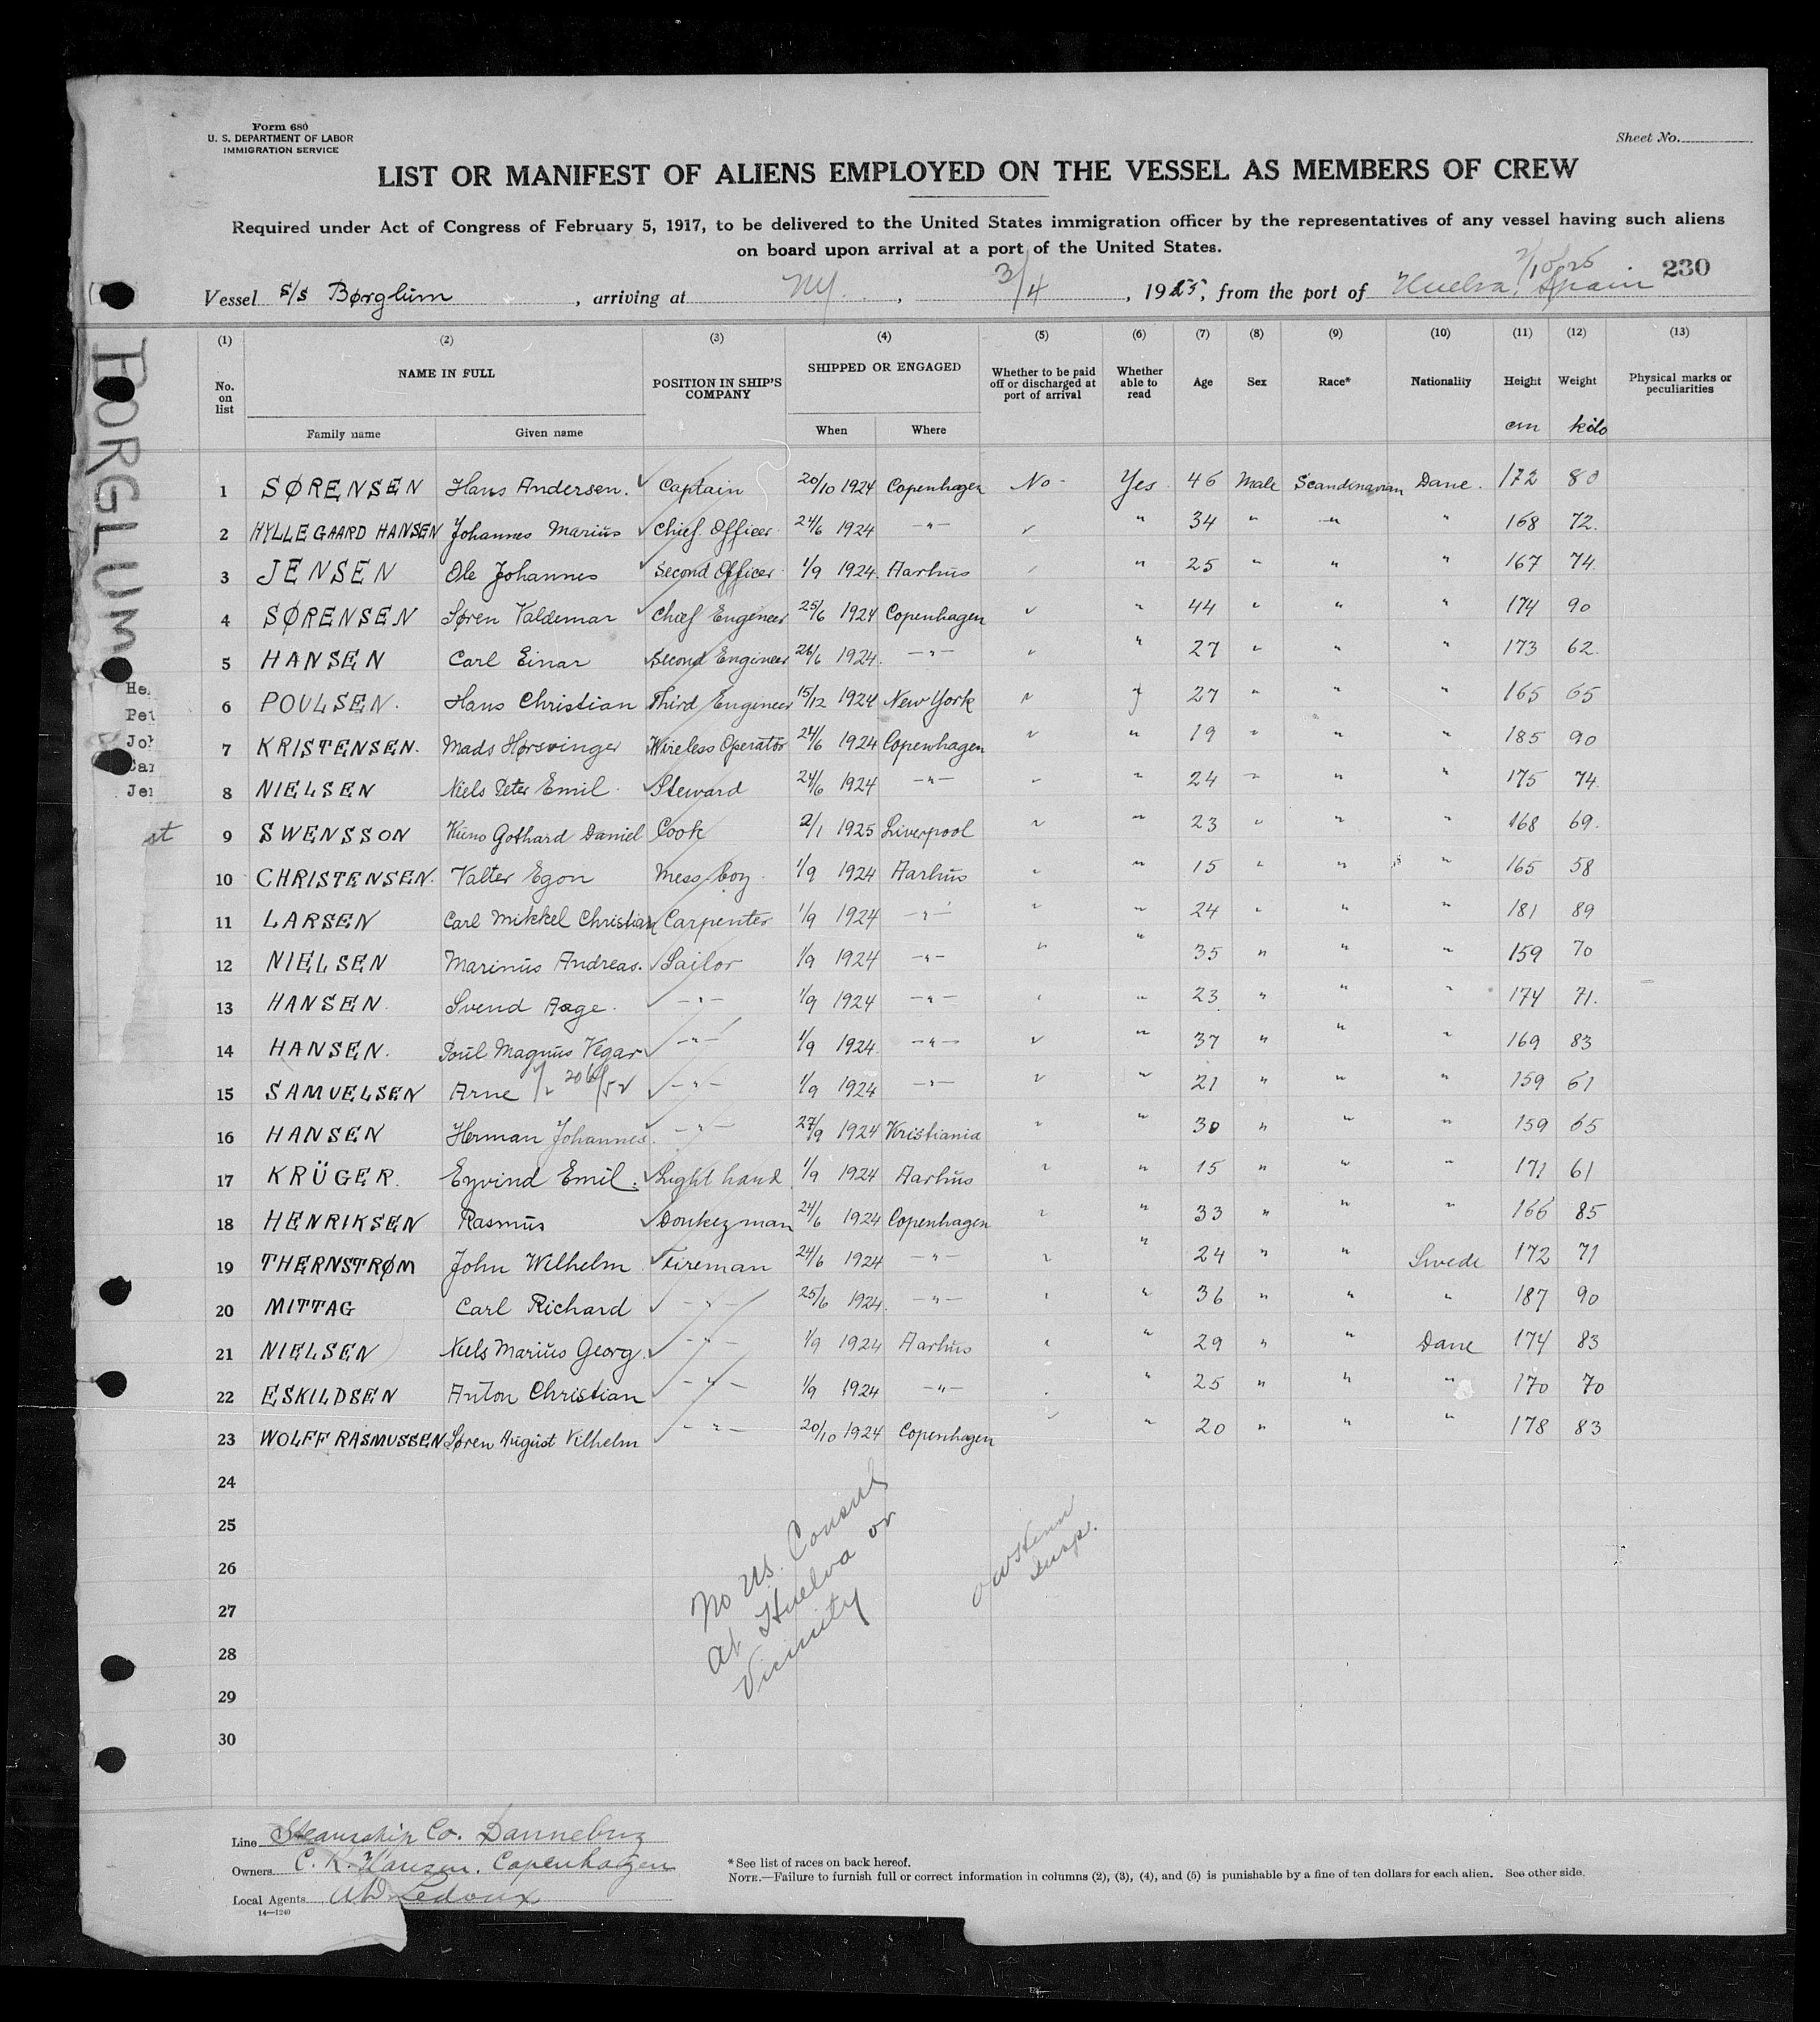 Form 680
U. S. DEPARTMENT OF LABOR
IMMIGRATION SERVICE
Sheet No.
LIST OR MANIFEST OF ALIENS EMPLOYED ON THE VESSEL AS MEMBERS OF CREW
Required under Act of Congress of February 5, 1917, to be delivered to the United States immigration officer by the representatives of any vessel having such aliens
on board upon arrival at a port of the United States.
230
Vessel S/S Børglum, arriving at NY, 3/4, 1925, from the port of Huelva, Spain
BORGLUM
(1) (2) (3) (4) (5) (6) (7) (8) (9) (10) (11) (12) (13)
No. on list NAME IN FULL POSITION IN SHIP'S COMPANY SHIPPED OR ENGAGED Whether to be paid off or discharged at port of arrival Whether able to read Age Sex Race* Nationality Height Weight Physical marks or peculiarities
Family name Given name When Where cm kilo
1 SØRENSEN Hans Andersen. Captain 20/10 1924 Copenhagen No - Yes 46 Male Scandinavian Dane. 172 80
2 HYLLEGAARD HANSEN Johannes Marius Chief Officer 24/6 1924 -"- " 34 " " " 168 72.
3 JENSEN Ole Johannes Second Officer 1/9 1924. Aarhus " 25 " " " 167 74
4 SØRENSEN Søren Valdemar Chief Engeneer 25/6 1924 Copenhagen " 44 " " " 174 90
5 HANSEN Carl Einar Second Engineer 26/6 1924. -"- " 27 " " " 173 62
6 POULSEN. Hans Christian Third Engineer 15/12 1924 New York " 27 " " " 165 65
7 KRISTENSEN. Mads Hørsvinger Wireless Operator 24/6 1924 Copenhagen " 19 " " " 185 90
8 NIELSEN Niels Peter Emil Steward 24/6 1924 -"- " 24 " " " 175 74
9 SWENSSON Kuno Gothard Daniel Cook 2/1 1925 Liverpool " 23 " " " 168 69.
10 CHRISTENSEN. Valter Egon Mess boy 1/9 1924 Aarhus " 15 " " " 165 58
11 LARSEN Carl Mikkel Christian Carpenter 1/9 1924 -"- " 24 " " " 181 89
12 NIELSEN Marinus Andreas. Sailor 1/9 1924 -"- " 35 " " " 159 70
13 HANSEN Svend Aage. -"- 1/9 1924 -"- " 23 " " " 174 71.
14 HANSEN. Poul Magnus Vegar -"- 1/9 1924 -"- " 37 " " " 169 83
15 SAMUELSEN Arne -"- 1/9 1924 -"- " 21 " " " 159 61
16 HANSEN Herman Johannes -"- 27/9 1924 Kristiania " 30 " " " 159 65
17 KRÜGER. Eyvind Emil. Light hand 1/9 1924 Aarhus " 15 " " " 171 61
18 HENRIKSEN Rasmus Donkeyman 24/6 1924 Copenhagen " 33 " " " 166 85
19 THERNSTRØM John Wilhelm Fireman 24/6 1924 -"- " 24 " " Swede 172 71
20 MITTAG Carl Richard -"- 25/6 1924. -"- " 36 " " " 187 90
21 NIELSEN Niels Marius Georg. -"- 1/9 1924 Aarhus " 29 " " Dane 174 83
22 ESKILDSEN Anton Christian -"- 1/9 1924 -"- " 25 " " " 170 70
23 WOLFF RASMUSSEN Søren August Vilhelm -"- 20/10 1924 Copenhagen " 20 " " " 178 83
24
25
26
27
28
29
30
No US. Consul
at Huelva or
Vicinity
Insp.
Line Steamship Co. Dannebrog
Owners C. K. Hansen. Copenhagen
Local Agents AD Ledoux
14—1240
* See list of races on back hereof.
NOTE.—Failure to furnish full or correct information in columns (2), (3), (4), and (5) is punishable by a fine of ten dollars for each alien. See other side.